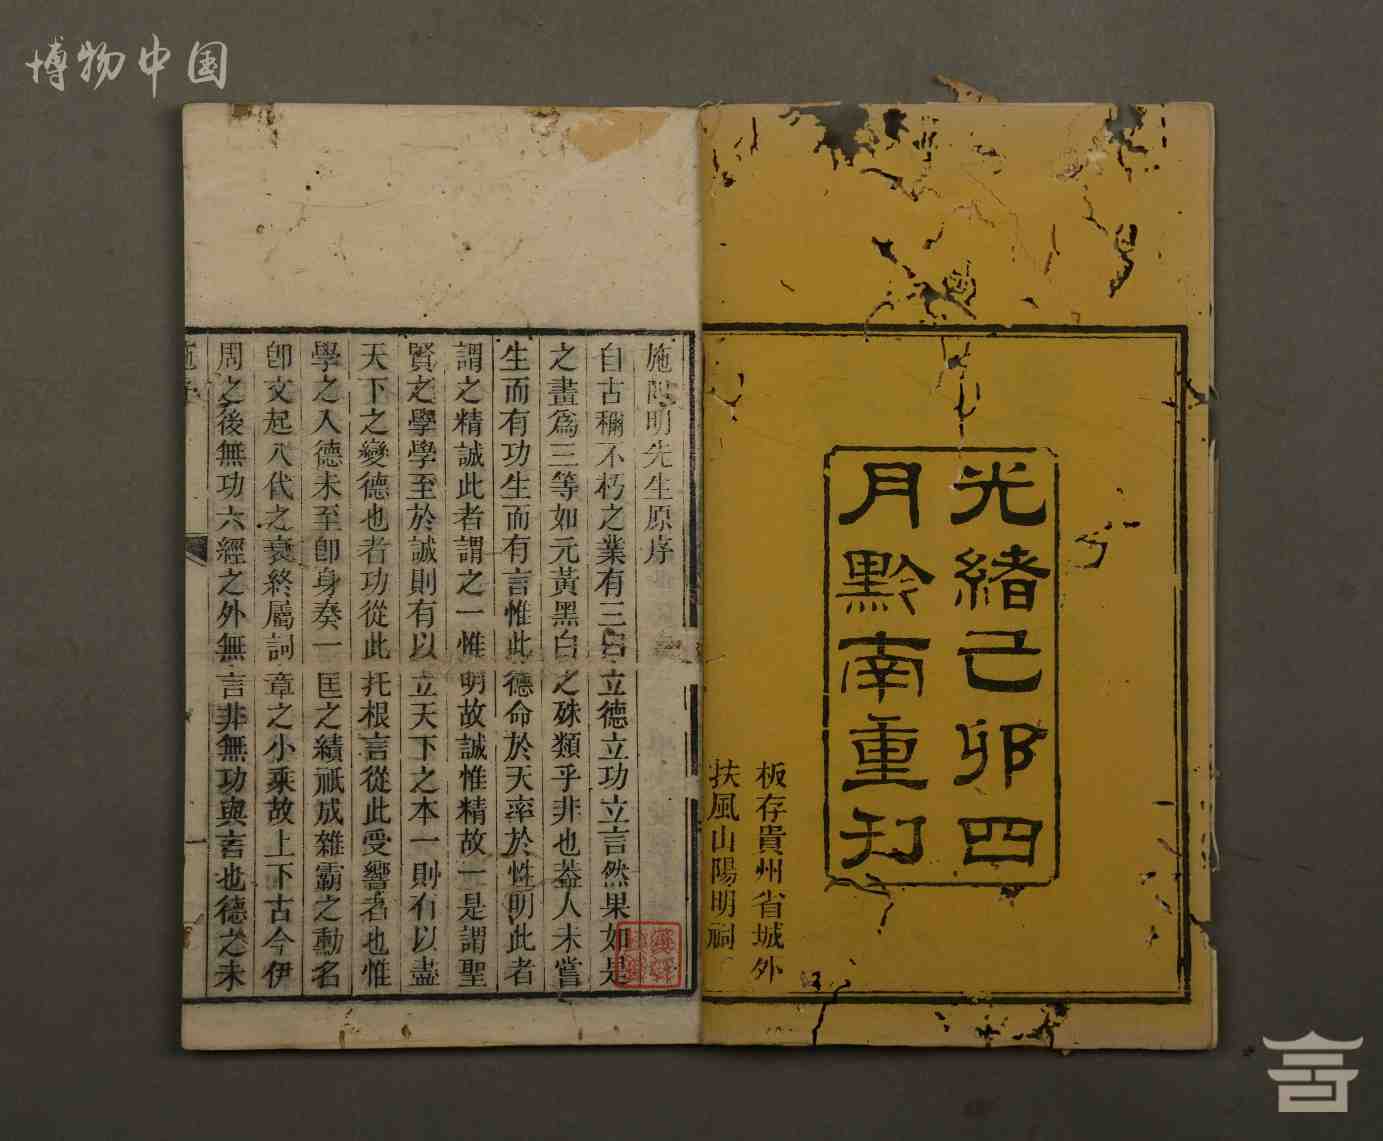 博物中国
光緒己卯四
月黔南重刊
板存貴州省城外
扶風山陽明祠
施陽明先生原序
自古稱不朽之業有三曰立德立功立言然果如是
之畫爲三等如元黃黑白之殊類乎非也葢人未嘗
生而有功生而有言惟此德命於天率於性明此者
謂之精誠此者謂之一惟明故誠惟精故一是謂聖
賢之學學至於誠則有以立天下之本一則有以盡
天下之變德也者功從此托根言從此受響者也惟
學之人德未至卽身奏一匡之績祇成雜霸之動名
卽文起八代之衰終屬詞章之小乘故上下古今伊
周之後無功六經之外無言非無功與言也德之未